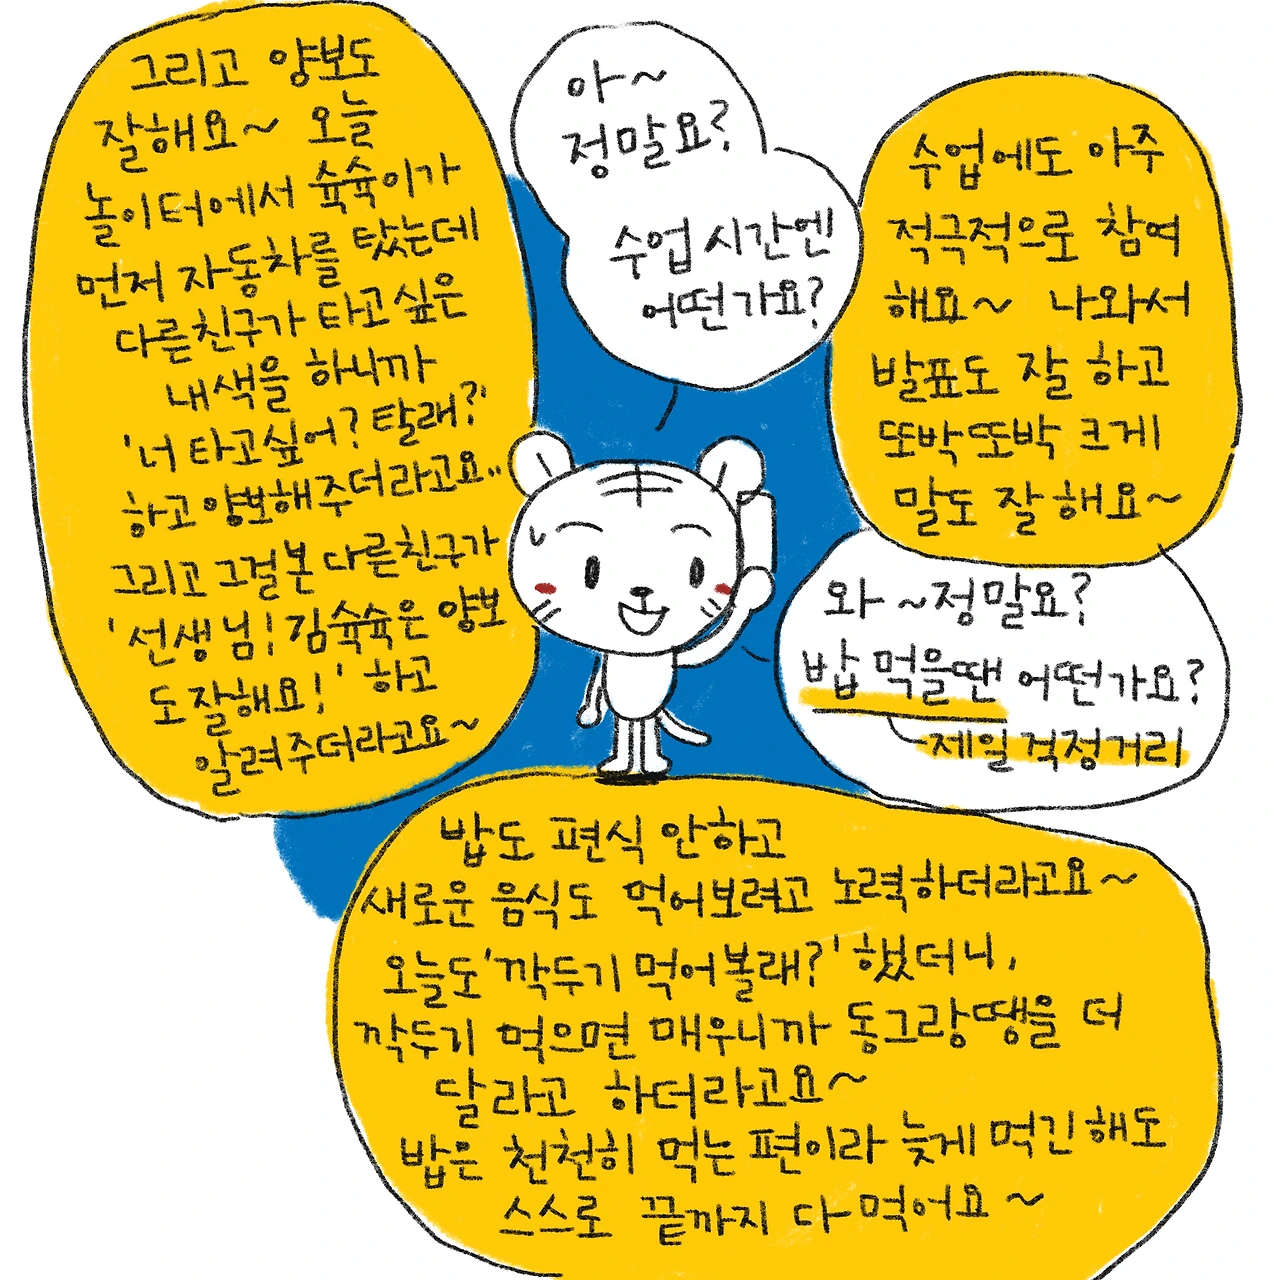 그리고 양보도
잘해요~ 오늘
놀이터에서 슉슉이가
먼저 자동차를 탔는데
다른친구가 타고싶은
내색을 하니까
'너 타고싶어? 탈래?'
하고 양보해주더라고요..
그리고 그걸본 다른친구가
'선생님! 김슉슉은 양보
도잘해요!' 하고
알려주더라고요~
아~
정말요?
수업 시간엔
어떤가요?
수업에도 아주
적극적으로 참여
해요~ 나와서
발표도 잘 하고
또박또박 크게
말도 잘해요~
와~정말요?
밥 먹을땐 어떤가요?
제일걱정거리
밥도 편식 안하고
새로운 음식도 먹어보려고 노력하더라고요~
오늘도 '깍두기 먹어볼래?' 했더니,
깍두기 먹으면 매우니까 동그랑땡을 더
달라고 하더라고요~
밥은 천천히 먹는편이라 늦게 먹긴해도
스스로 끝까지 다먹어요~